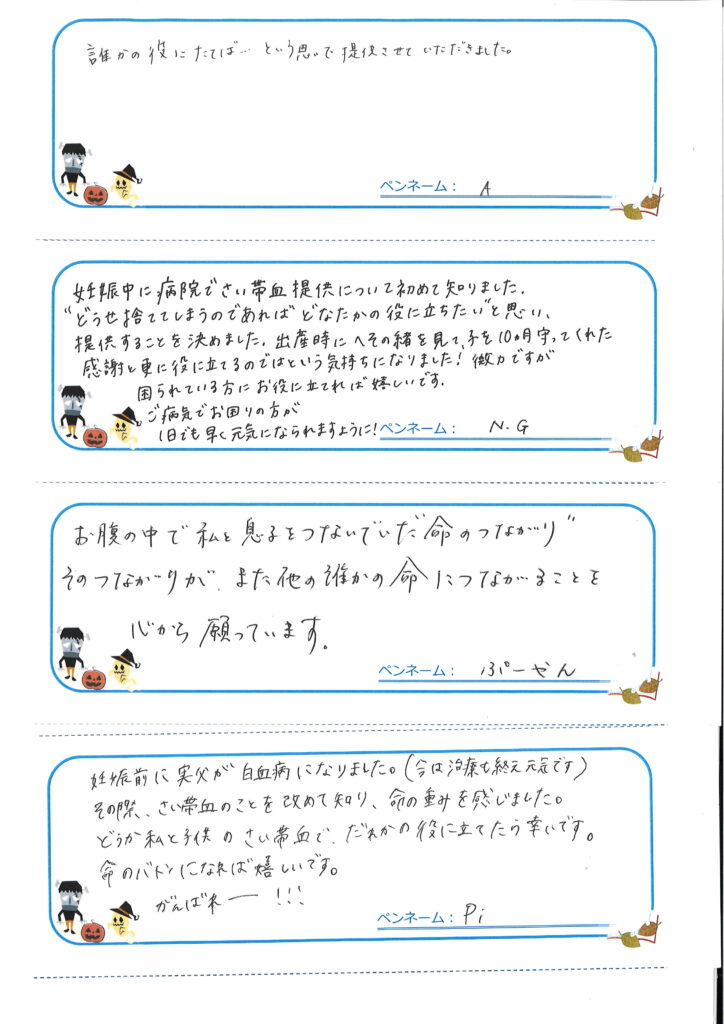 誰かの役にたてば… という思いで提供させていただきました。
ペンネーム： A
妊娠中に病院でさい帯血提供について初めて知りました.
"どうせ捨ててしまうのであればどなたかの役に立ちたい"と思い、
提供することを決めました. 出産時にへその緒を見て、子を10ヵ月守ってくれた
感謝と更に役に立てるのではという気持ちになりました! 微力ですが
困られている方にお役に立てれば嬉しいです.
ご病気でお困りの方が
1日でも早く元気になられますように!
ペンネーム： N.G
お腹の中で私と息子をつないでいだ"命のつながり"
そのつながりが、また他の誰かの命につながることを
心から願っています。
ペンネーム： ぷーやん
妊娠前に実父が白血病になりました。(今は治療も終え元気です)
その際、さい帯血のことを改めて知り、命の重みを感じました。
どうか私と子供のさい帯血で、だれかの役に立てたら幸いです。
命のバトンになれば嬉しいです。
がんばれー!!!
ペンネーム： Pi